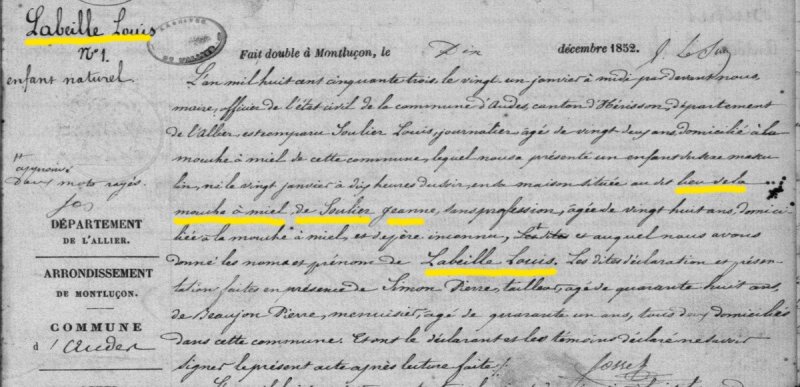 Labeille Louis
N° 1.
enfant naturel.
Fait double à Montluçon, le Dix décembre 1852.
L'an mil huit cent cinquante trois, le vingt un janvier à midi, par devant nous
maire, officier de l'état civil de la commune d'Audes, canton d'Hérisson, département
de l'Allier, est comparu Soulier Louis, journalier, agé de vingt deux ans, domicilié à la
mouche à miel de cette commune, lequel nous a présenté un enfant du sexe mascu
lin, né le vingt janvier à dix heures du soir, en sa maison située au dit lieu de la
mouche à miel, de Soulier jeanne, sans profession, agée de vingt huit ans, domici
liée à la mouche à miel, et de père inconnu, et auquel nous avons
donné les noms et prénom de Labeille Louis. Les dites déclaration et présen
tation faites en présence de Simon Pierre, tailleur, agé de quarante huit ans,
de Beaujon Pierre, menuisier, agé de quarante un ans, tous deux domiciliés
dans cette commune. Et ont le déclarant et les témoins déclaré ne savoir
signer le présent acte après lecture faite.
approuvé
deux mots rayés.
DÉPARTEMENT
DE L'ALLIER.
ARRONDISSEMENT
DE MONTLUÇON.
COMMUNE
d'Audes